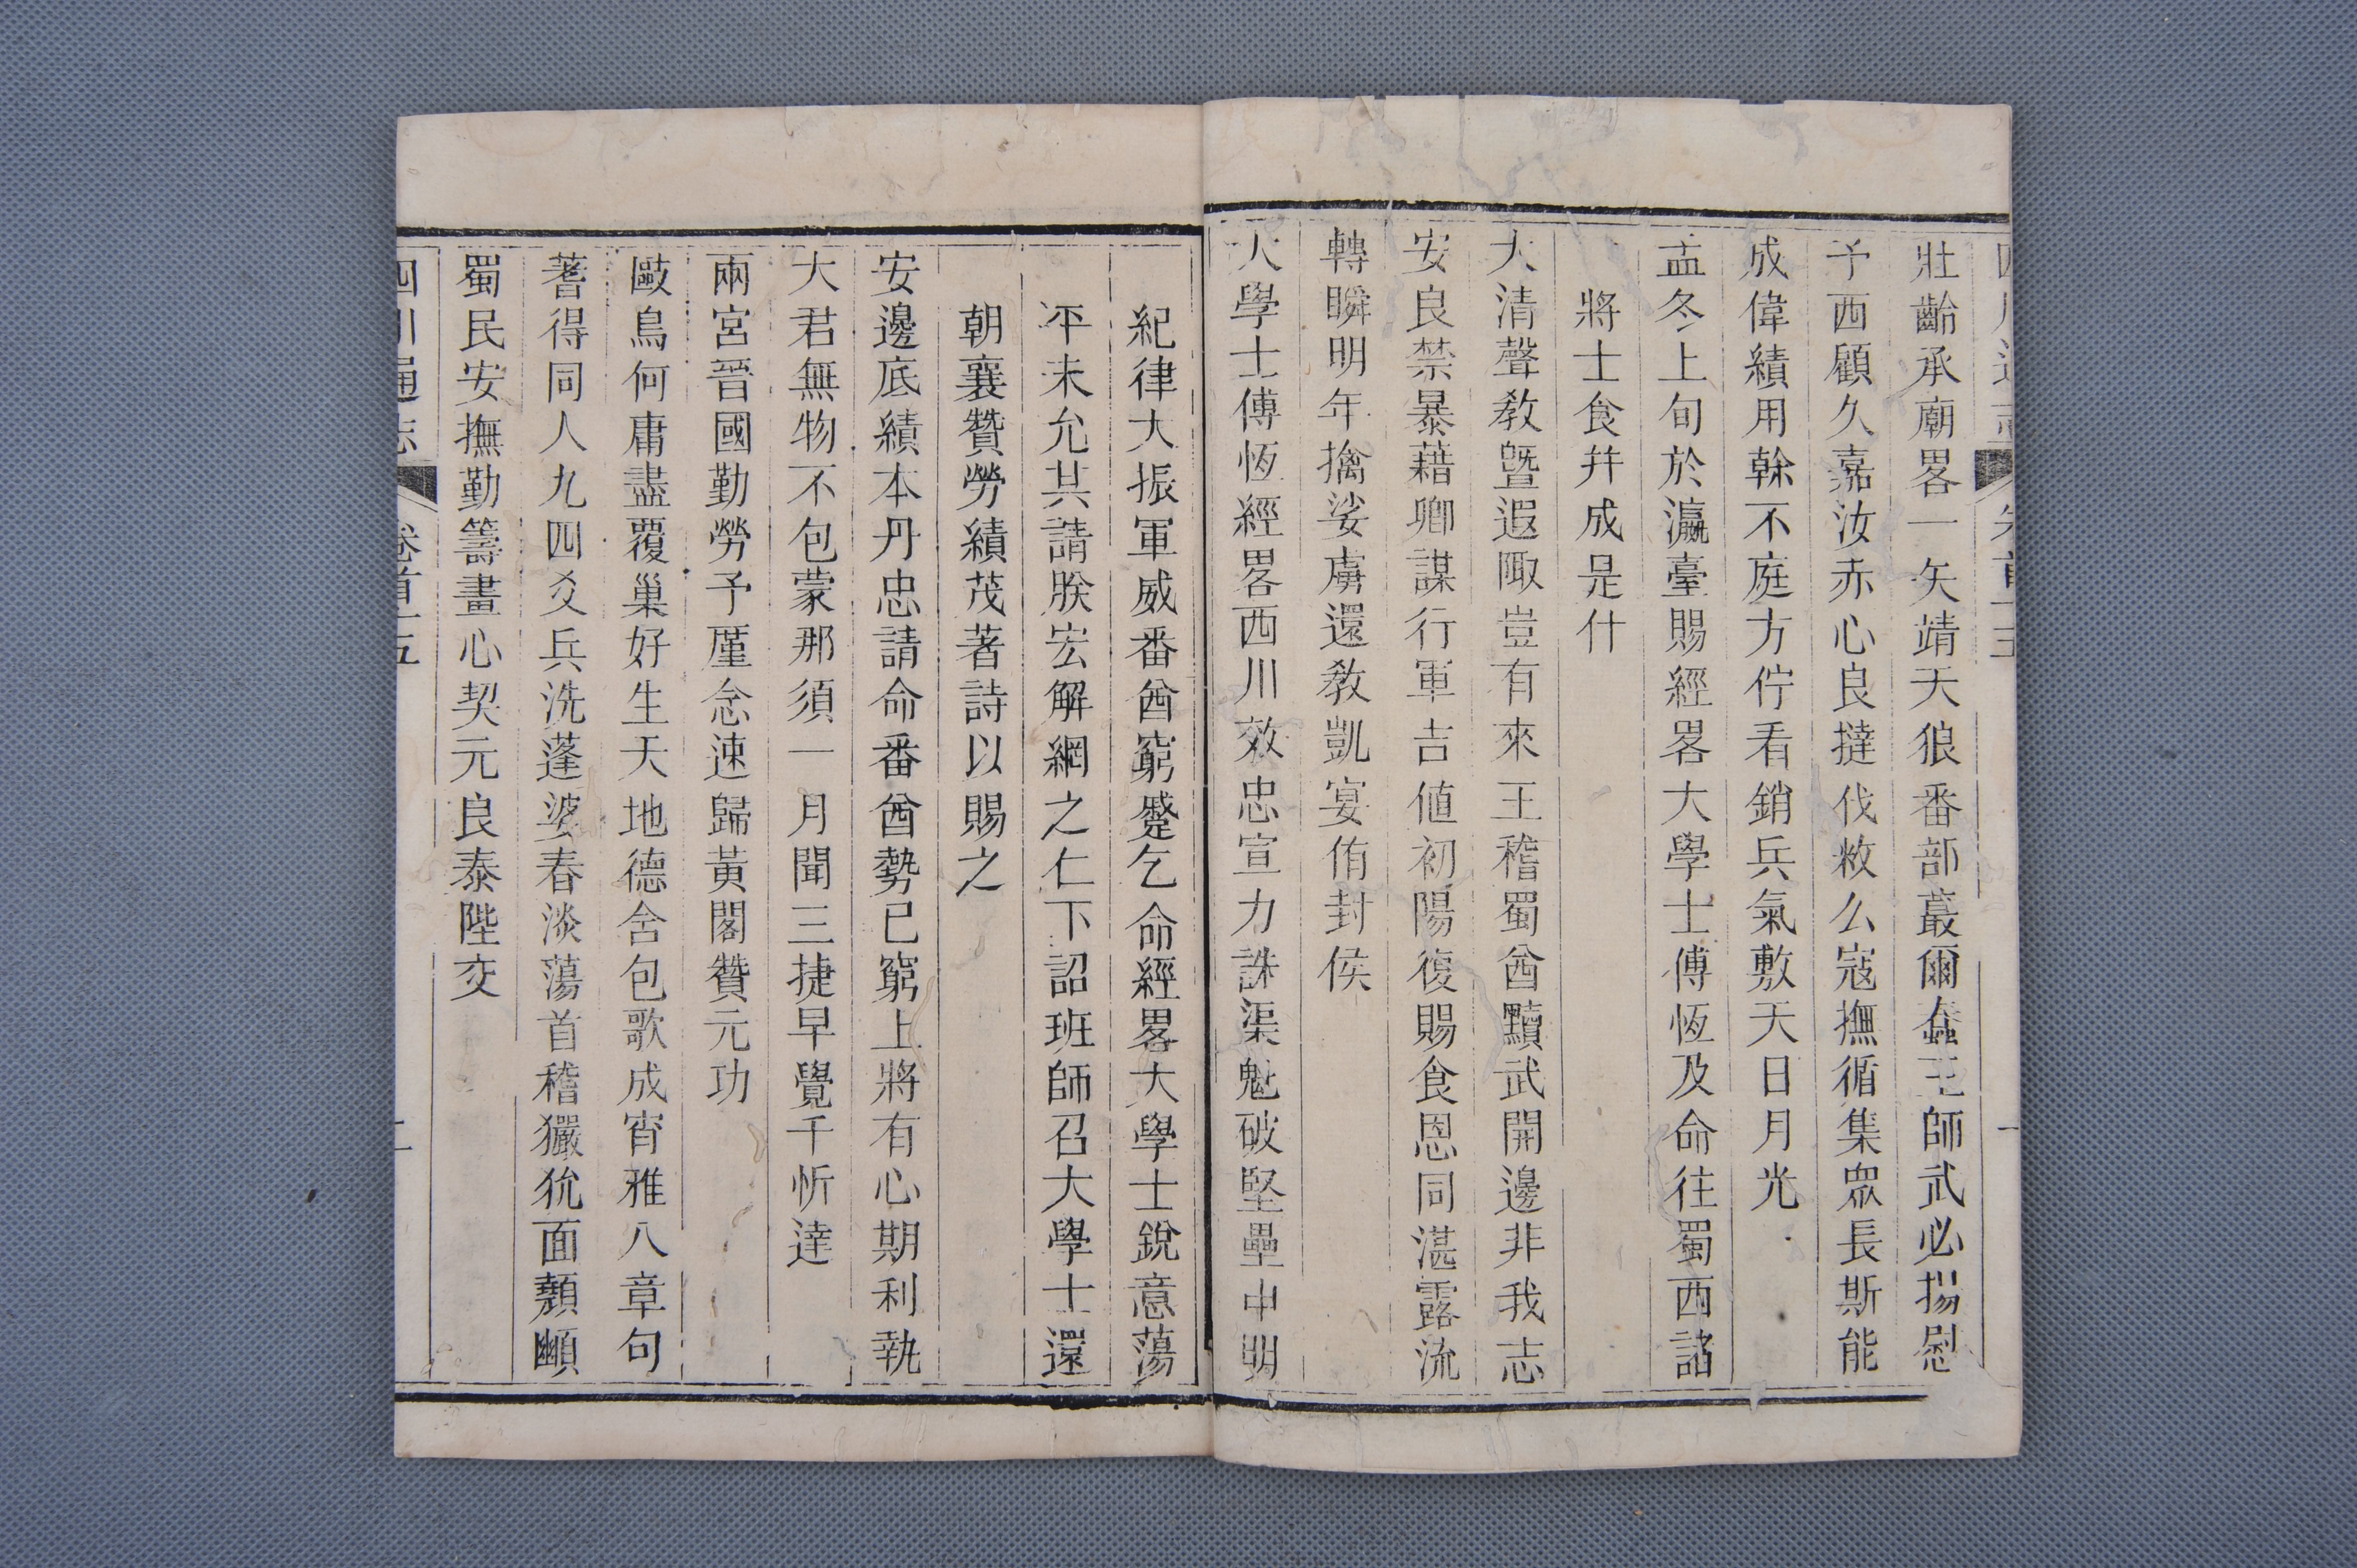 壯齡承廟畧一矢靖天狼番部蕞爾蠢王師武必揚慰
予西顧久嘉汝赤心良撻伐救么寇撫循集眾長斯能
成偉績用榦不庭方佇看銷兵氣敷天日月光
孟冬上旬於瀛臺賜經畧大學士傅恆及命往蜀西諸
將士食幷成是什
大清聲教曁遐陬豈有來王稽蜀酋黷武開邊非我志
安良禁暴藉卿謀行軍吉値初陽復賜食恩同湛露流
轉瞬明年擒娑虜還敎凱宴侑封侯
大學士傅恆經畧西川效忠宣力誅渠魁破堅壘申明
紀律大振軍威番酋窮蹙乞命經畧大學士銳意蕩
平未允其請朕宏解網之仁下詔班師召大學士還
朝襄贊勞績茂著詩以賜之
安邊底績本丹忠請命番酋勢已窮上將有心期利執
大君無物不包蒙那須一月聞三捷早覺千忻達
兩宮晉國勤勞予厪念速歸黃閣贊元功
歐鳥何庸盡覆巢好生天地德舍包歌成宵雅八章句
蓍得同人九四爻兵洗蓬婆春淡蕩首稽玁狁面顤顟
蜀民安撫勤籌畫心契元良泰陛交
四川通志
卷首一五
二